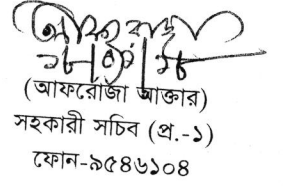 (আফরোজা আক্তার)
সহকারী সচিব (প্র.-১)
ফোন-৯৫৪৬১০৪